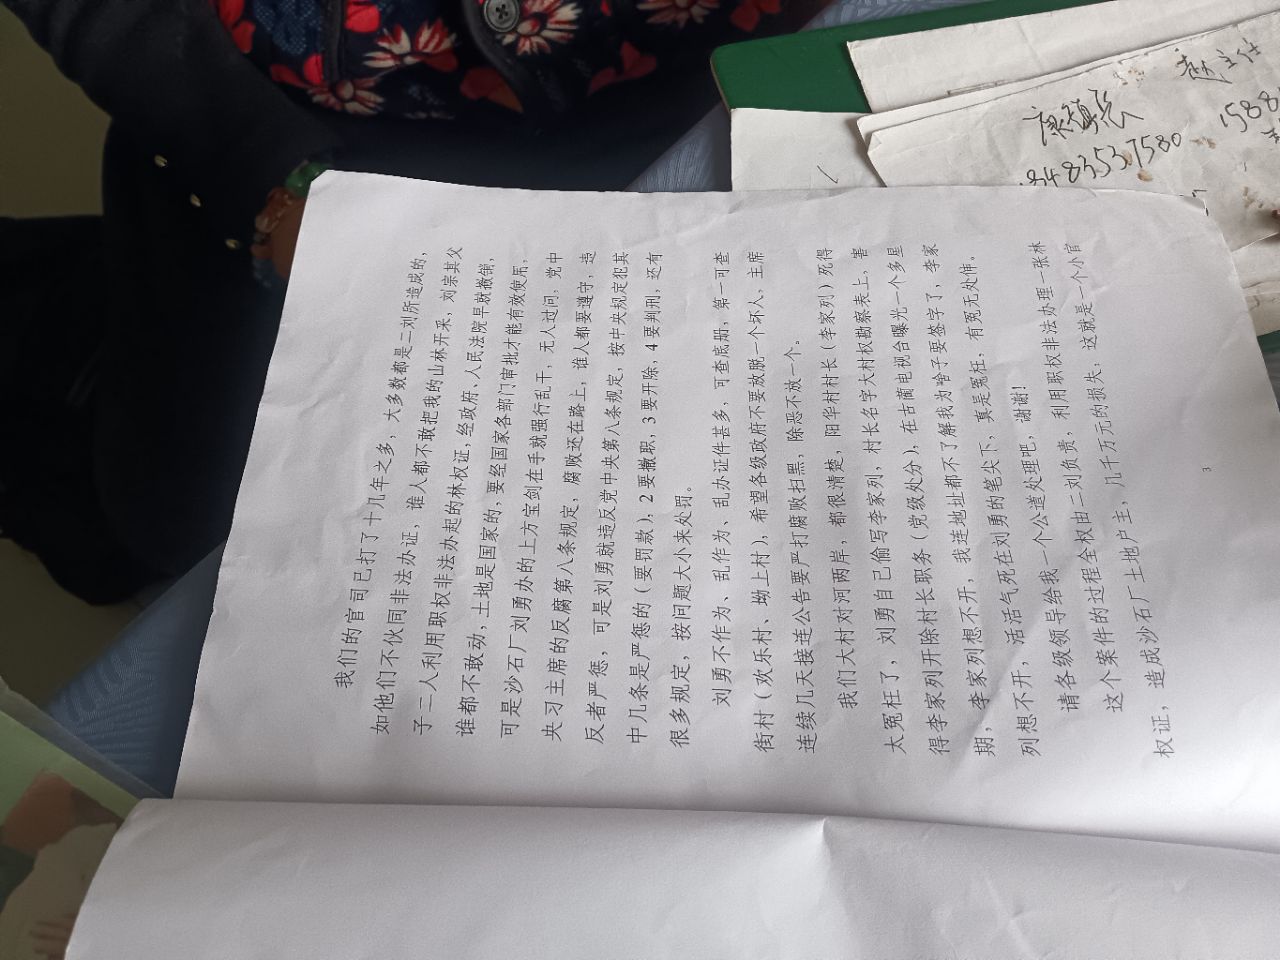 我们的官司已打了十几年之多，大多数都是二刘所造成的，
如他们不伙同非法办证，谁人都不敢把我的山林开采，刘宗其父
子二人利用职权非法办起的林权证，经政府、人民法院早就撤销，
谁都不敢动，土地是国家的，要经国家各部门审批才能有效使用，
可是沙石厂刘勇办的上方宝剑在手就强行乱干，无人过问，党中
央习主席的反腐第八条规定，腐败还在路上，谁人都要遵守，违
反者严惩，可是刘勇就违反党中央第八条规定，按中央规定犯其
中几条是严惩的（要罚款），2要撤职，3要开除，4要判刑，还有
很多规定，按问题大小来处罚。
刘勇不作为、乱作为、乱办证件甚多，可查底册，第一可查
街村（欢乐村、坳上村），希望各级政府不要放脱一个坏人，主席
连续几天接连公告要严打腐败扫黑，除恶不放一个。
我们大村对河两岸，都很清楚，阳华村村长（李家列）死得
太冤枉了，刘勇自己偷写李家列，村长名字大村权勘察表上，害
得李家列开除村长职务（党级处分），在古蔺电视台曝光一个多星
期，李家列想不开，我连地址都不了解我为啥子要签字了，李家
列想不开，活活气死在刘勇的笔尖下，真是冤枉，有冤无处伸。
请各级领导给我一个公道处理吧，谢谢！
这个案件的过程全权由二刘负责，利用职权非法办理一张林
权证，造成沙石厂土地户主，几千万元的损失，这就是一个小官
3
康镇长
18483537580
赵主任
1588